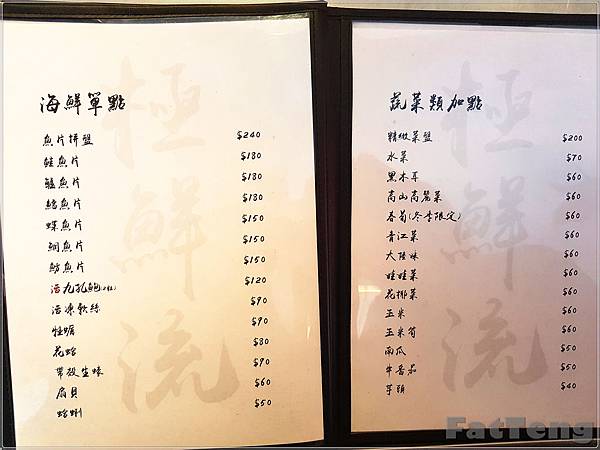 海鮮單點
魚片拼盤 $240
鮭魚片 $180
鱸魚片 $180
鯛魚片 $180
鰈魚片 $150
鯝魚片 $150
魴魚片 $150
活九孔鮑(2粒) $120
活凍軟絲 $90
牡蠣 $90
花蛤 $80
帶殼生蠔 $90
扇貝 $60
蛤蜊 $50
極鮮流
蔬菜類加點
精緻菜盤 $200
水菜 $70
黑木耳 $60
高山高麗菜 $60
春菊(冬季限定) $60
青江菜 $60
大陸妹 $60
娃娃菜 $60
花椰菜 $60
玉米 $60
玉米筍 $60
南瓜 $50
牛番茄 $50
芋頭 $40
極鮮流
FatTeng